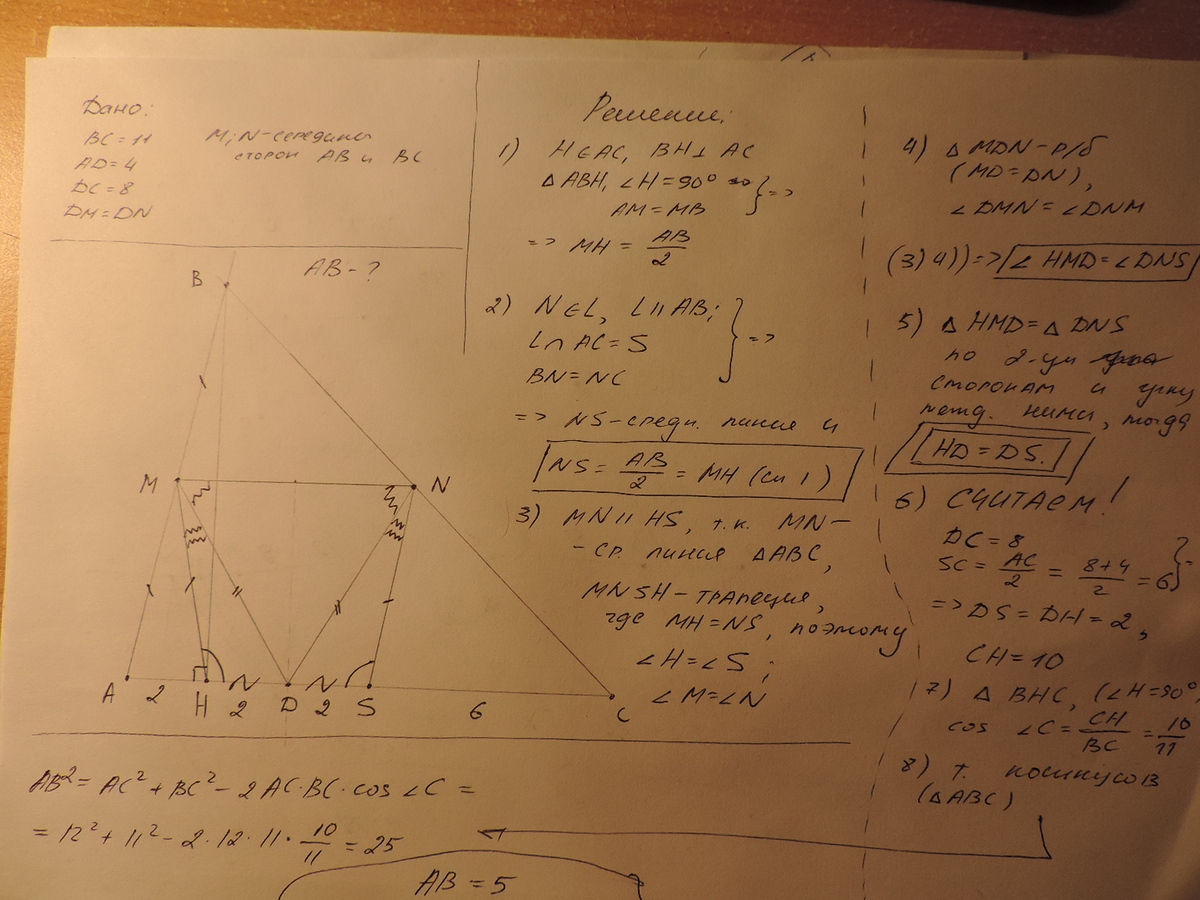 Дано:
BC = 11
AD = 4
DC = 8
DM = DN
M; N - середины
сторон AB и BC
AB - ?
B
M
N
A
2
H
2
D
2
S
6
C
Решение:
1) H∈AC, BH⊥AC
△ABH, ∠H=90°
AM = MB
} =>
=> MH = AB/2
2) N∈L, L||AB;
L∩AC = S
BN = NC
} =>
=> NS - средн. линия и
NS = AB/2 = MH (см 1)
3) MN || HS, т.к. MN -
- ср. линия △ABC,
MNSH - трапеция,
где MH = NS, поэтому
∠H = ∠S;
∠M = ∠N
4) △MDN - р/б
(MD = DN),
∠DMN = ∠DNM
(3) 4)) => ∠HMD = ∠DNS
5) △HMD = △DNS
по 2-ум
сторонам и углу
межд. ними, тогда
HD = DS.
6) СЧИТАЕМ!
DC = 8
SC = AC/2 = (8+4)/2 = 6
} =
=> DS = DH = 2,
CH = 10
7) △BHC, (∠H = 90°,
cos ∠C = CH/BC = 10/11
8) т. косинусов
(△ABC)
AB² = AC² + BC² - 2AC·BC·cos∠C =
= 12² + 11² - 2·12·11·10/11 = 25
AB = 5